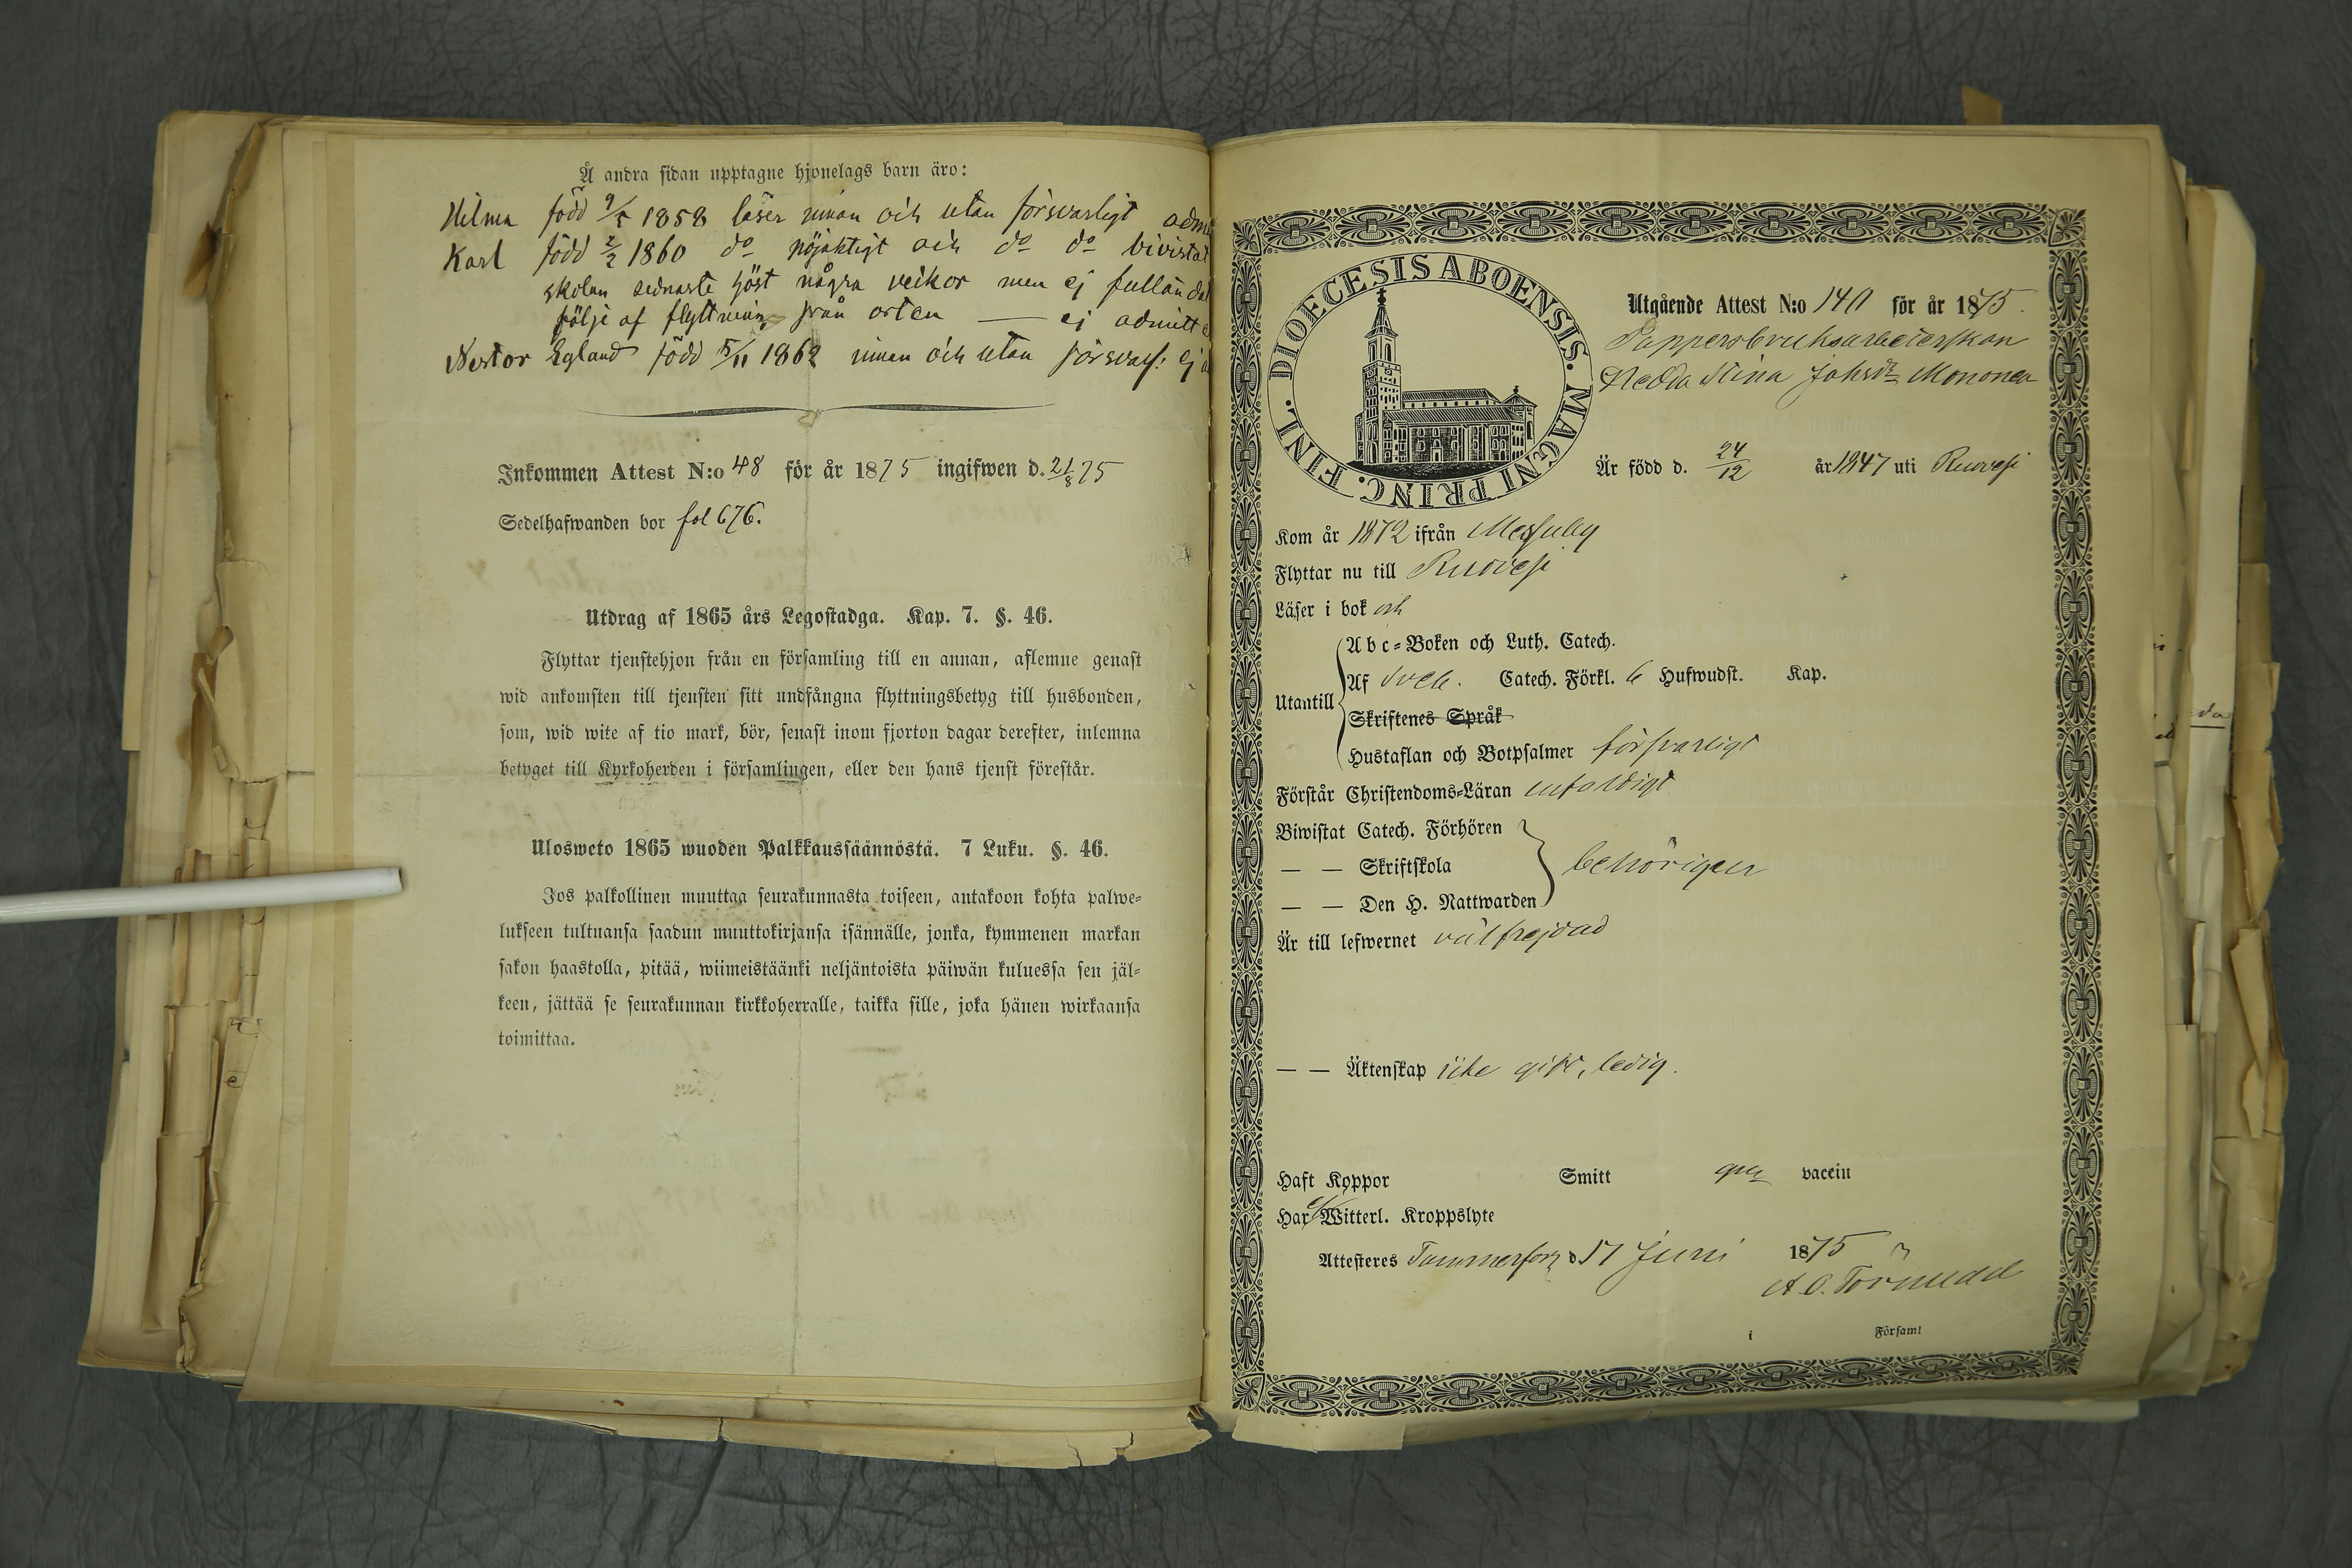 Å andra sidan upptagne hjonelags barn äro:
Hilma född 9/5 1858 läser innan och utan försvarligt adm
Karl född 2/2 1860 do nöjaktigt och do do bivistat
skolan sednaste höst några veckor men ej fulländat
följe af flyttning från orten — ej admitte
Nestor Egland född 5/11 1862 innan och utan försvarl: ej a
Inkommen Attest N:o 48 för år 1875 ingifwen d. 21/8 75
Sedelhafwanden bor fol 676.
Utdrag af 1865 års Legostadga. Kap. 7. §. 46.
Flyttar tjenstehjon från en församling till en annan, aflemne genast
wid ankomsten till tjensten sitt undfångna flyttningsbetyg till husbonden,
som, wid wite af tio mark, bör, senast inom fjorton dagar derefter, inlemna
betyget till Kyrkoherden i församlingen, eller den hans tjenst förestår.
Ulosweto 1865 wuoden Palkkaussäännöstä. 7 Luku. §. 46.
Jos palkollinen muuttaa seurakunnasta toiseen, antakoon kohta palwe-
lukseen tultuansa saadun muuttokirjansa isännälle, jonka, kymmenen markan
sakon haastolla, pitää, wiimeistäänki neljäntoista päiwän kuluessa sen jäl-
keen, jättää se seurakunnan kirkkoherralle, taikka sille, joka hänen wirkaansa
toimittaa.
DIOECESIS ABOENSIS. MAGNI PRINC. FINL.
Utgående Attest N:o 140 för år 1875.
Pappersbruksarbeterskan
Hedda Stina Johsdr Mononen
Är född d. 24/12 år 1847 uti Ruovesi
Kom år 1872 ifrån Messuby
Flyttar nu till Ruovesi
Läser i bok och
Abc-Boken och Luth. Catech.
Utantill Af Sveb. Catech. Förkl. 6 Hufwudst. Kap.
Skriftenes Språk
Hustaflan och Botpsalmer försvarligt
Förstår Christendoms-Läran enfaldigt
Biwistat Catech. Förhören
— — Skriftskola behörigen
— — Den H. Nattwarden
Är till lefwernet välfrejdad
— — Äktenskap icke gift, ledig.
Haft Koppor Smitt vaccin
Har ej Witterl. Kroppslyte
Attesteres Tammerfors d 17 Juni 1875
A. O. Törnudd
i Församl